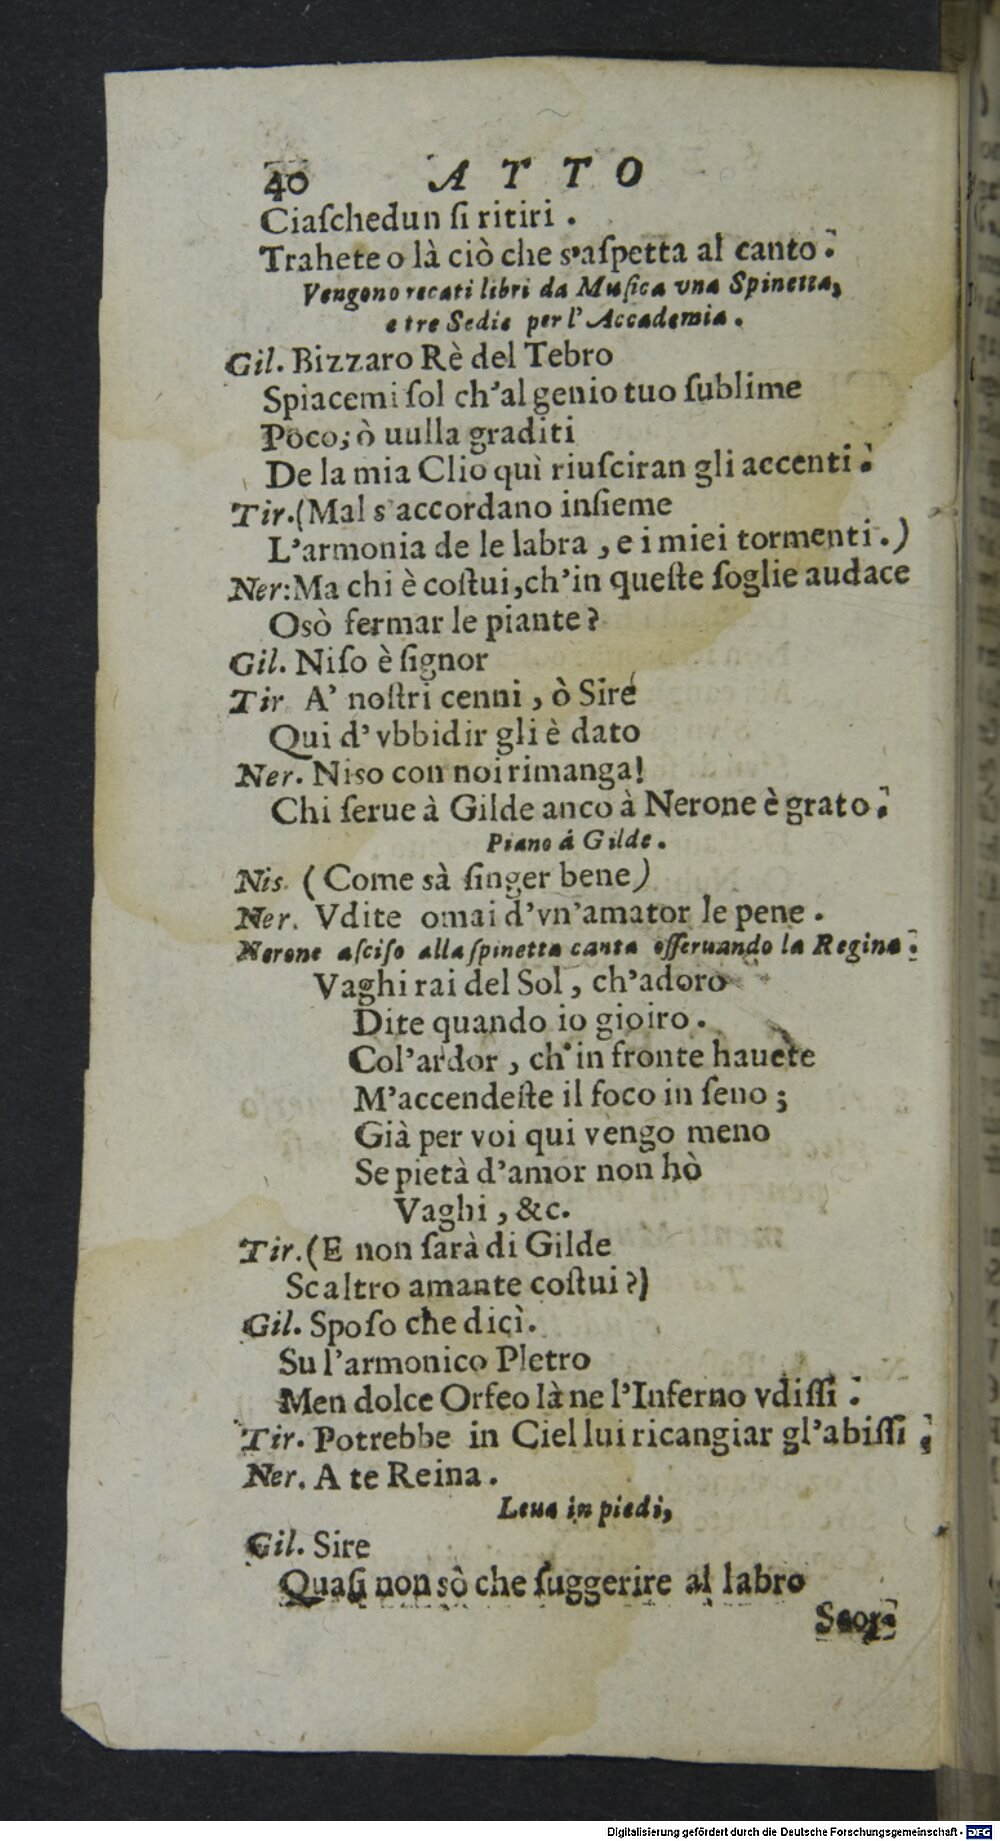 40 ATTO
Ciaſchedun ſi ritiri.
Trahete o là ciò che s'aſpetta al canto.
Vengono recati libri da Muſica vna Spinetta,
e tre Sedie per l'Accademia.
Gil. Bizzaro Rè del Tebro
Spiacemi ſol ch'al genio tuo ſublime
Poco; ò uulla graditi
De la mia Clio quì riuſciran gli accenti.
Tir. (Mal s'accordano inſieme
L'armonia de le labra, e i miei tormenti.)
Ner: Ma chi è coſtui, ch'in queſte ſoglie audace
Osò fermar le piante?
Gil. Niſo è ſignor
Tir A' noſtri cenni, ò Sire
Qui d'vbbidir gli è dato
Ner. Niso con noi rimanga!
Chi ſerue à Gilde anco à Nerone è grato.
Piano á Gilde.
Nis. (Come sà finger bene)
Ner. Vdite omai d'vn'amator le pene.
Nerone aſciſo alla ſpinetta canta oſſeruando la Regina.
Vaghi rai del Sol, ch'adoro
Dite quando io gioiro.
Col'ardor, ch'in fronte hauete
M'accendeſte il foco in ſeno;
Già per voi qui vengo meno
Se pietà d'amor non hò
Vaghi, &c.
Tir. (E non ſarà di Gilde
Scaltro amante coſtui?)
Gil. Spoſo che dicì.
Su l'armonico Pletro
Men dolce Orfeo là ne l'Inferno vdiſſi.
Tir. Potrebbe in Ciel lui ricangiar gl'abiſſi;
Ner. A te Reina.
Leua in piedi,
Gil. Sire
Quaſi non sò che ſuggerire al labro
Scor-
Digitalisierung gefördert durch die Deutsche Forschungsgemeinschaft - DFG